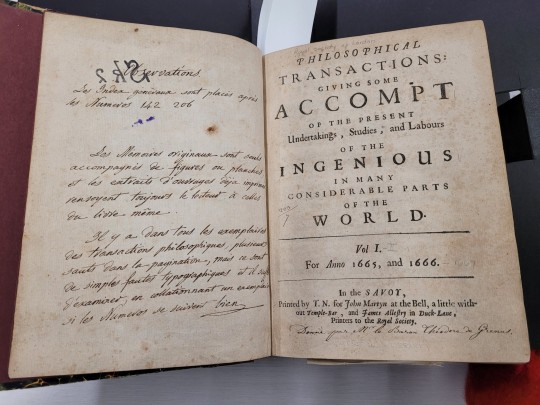 Observations.
Les Index généraux sont placés après
les Numéros 142 206
Les Memoires originaux sont seuls
accompagnés de figures ou planches
et les extraits d'ouvrages déja imprimés
renvoyent toujours le lecteur à celles
du livre même.
Il y a dans tous les exemplaires
des transactions philosophiques, plusieurs
sauts dans la pagination, mais ce sont
de simples fautes typographiques et il suffit
d'examiner, en collationnant un exemplaire
si les Numeros se suivent bien
PHILOSOPHICAL
TRANSACTIONS:
GIVING SOME
ACCOMPT
OF THE PRESENT
Undertakings, Studies, and Labours
OF THE
INGENIOUS
IN MANY
CONSIDERABLE PARTS
OF THE
WORLD.
Vol I.
For Anno 1665, and 1666.
In the SAVOY,
Printed by T. N. for John Martyn at the Bell, a little with-
out Temple-Bar, and James Allestry in Duck-Lane,
Printers to the Royal Society.
Donné par Mr le Baron Théodore de